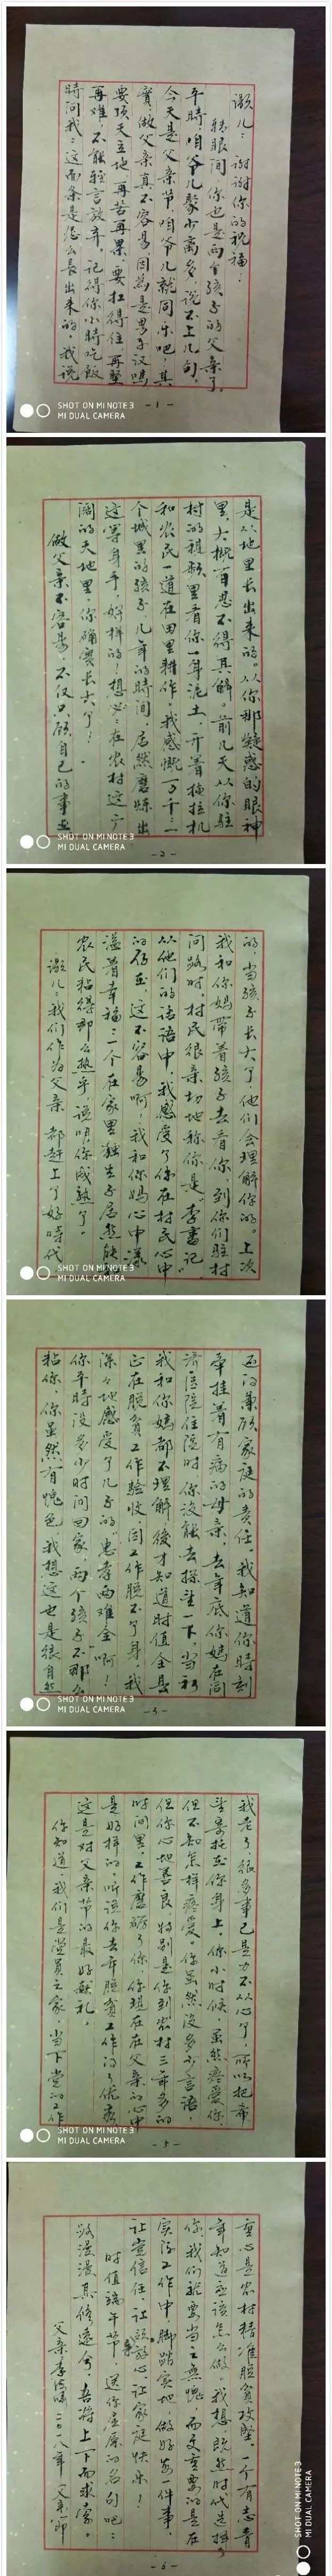 灏儿：谢谢你的祝福！
转眼间你也是两个孩子的父亲了。
平時，咱爷儿聚少离多，说不上几句，
今天是父亲节，咱爷儿就同乐吧，其
實，做父亲真不容易，因為是男子汉嗎，
要顶天立地，再苦再累，要扛得住，再艱
再难，不能轻言放弃。记得你小時吃飯
時问我：这面条是怎么長出来的，我说
-1-
SHOT ON MI NOTE 3
MI DUAL CAMERA
是从地里长出来的。从你那疑惑的眼神
里，大概百思不得其解。前几天从你駐
村的視頻里看你一身泥土，开着拖拉机
和农民一道在田里耕作，我感慨万千：一
个城里的孩子几年的時间，居然磨炼出
这等身手，好样的！想必：在农村这广
阔的天地里，你确实长大了！
做父亲不容易，不仅只顾自己的事业
-2-
SHOT ON MI NOTE 3
MI DUAL CAMERA
的，当孩子长大了，他们会理解你的。上次
我和你妈带着孩子去看你，到你们駐村
问路时，村民很亲切地称你是"李書记"，
从他们的话语中，我感受了你在村民心中
的存在，这不容易啊，我和你妈心中洋
溢着幸福：一个在家里独生子居然能和
农民粘得那么热乎，说明你成熟了。
灏儿：我们作为父亲，都赶上了好時代
SHOT ON MI NOTE 3
MI DUAL CAMERA
还得兼顾家庭的责任。我知道你時刻
牵挂着有病的母亲，去年底你妈在同
济医院住院时，你没能去探望一下，当初
我和你媽都不理解，後才知道时值全县
正在脱贫工作验收，因工作脱不了身，我
深々地感受了儿子的"忠孝两难全"啊！
你平時没多少时间回家，两个孩子不那么
粘你，你虽然有愧色，我想这也是很自然
-3-
SHOT ON MI NOTE 3
MI DUAL CAMERA
我老了，很多事已是力不从心了，所以把希
望寄托在你身上。你小时候，虽然疼爱你，
但不知怎样疼爱。你虽然没多少言语，
但你心地善良，特别是你到农村三年多的
时间里，工作磨砺了你，你现在在父亲的心中
是好样的。听说你去年脱贫工作得了优秀，
这是对父亲节的最好献礼。
你知道，我们是党員之家，当下党的工作
-5-
SHOT ON MI NOTE 3
MI DUAL CAMERA
重心是农村精准脱贫攻坚。一个有志青
年知道应该怎么做。我想既然时代选择了
你，我们就要当之無愧，而更重要的是在
实际工作中脚踏实地，做好每一件事，
让党信任，让放心，让家庭快乐！
时值端午节，送你屈原的名句吧：
路漫漫其修遠兮，吾将上下而求索。
二〇一八年父亲节
-6-
SHOT ON MI NOTE 3
MI DUAL CAMERA